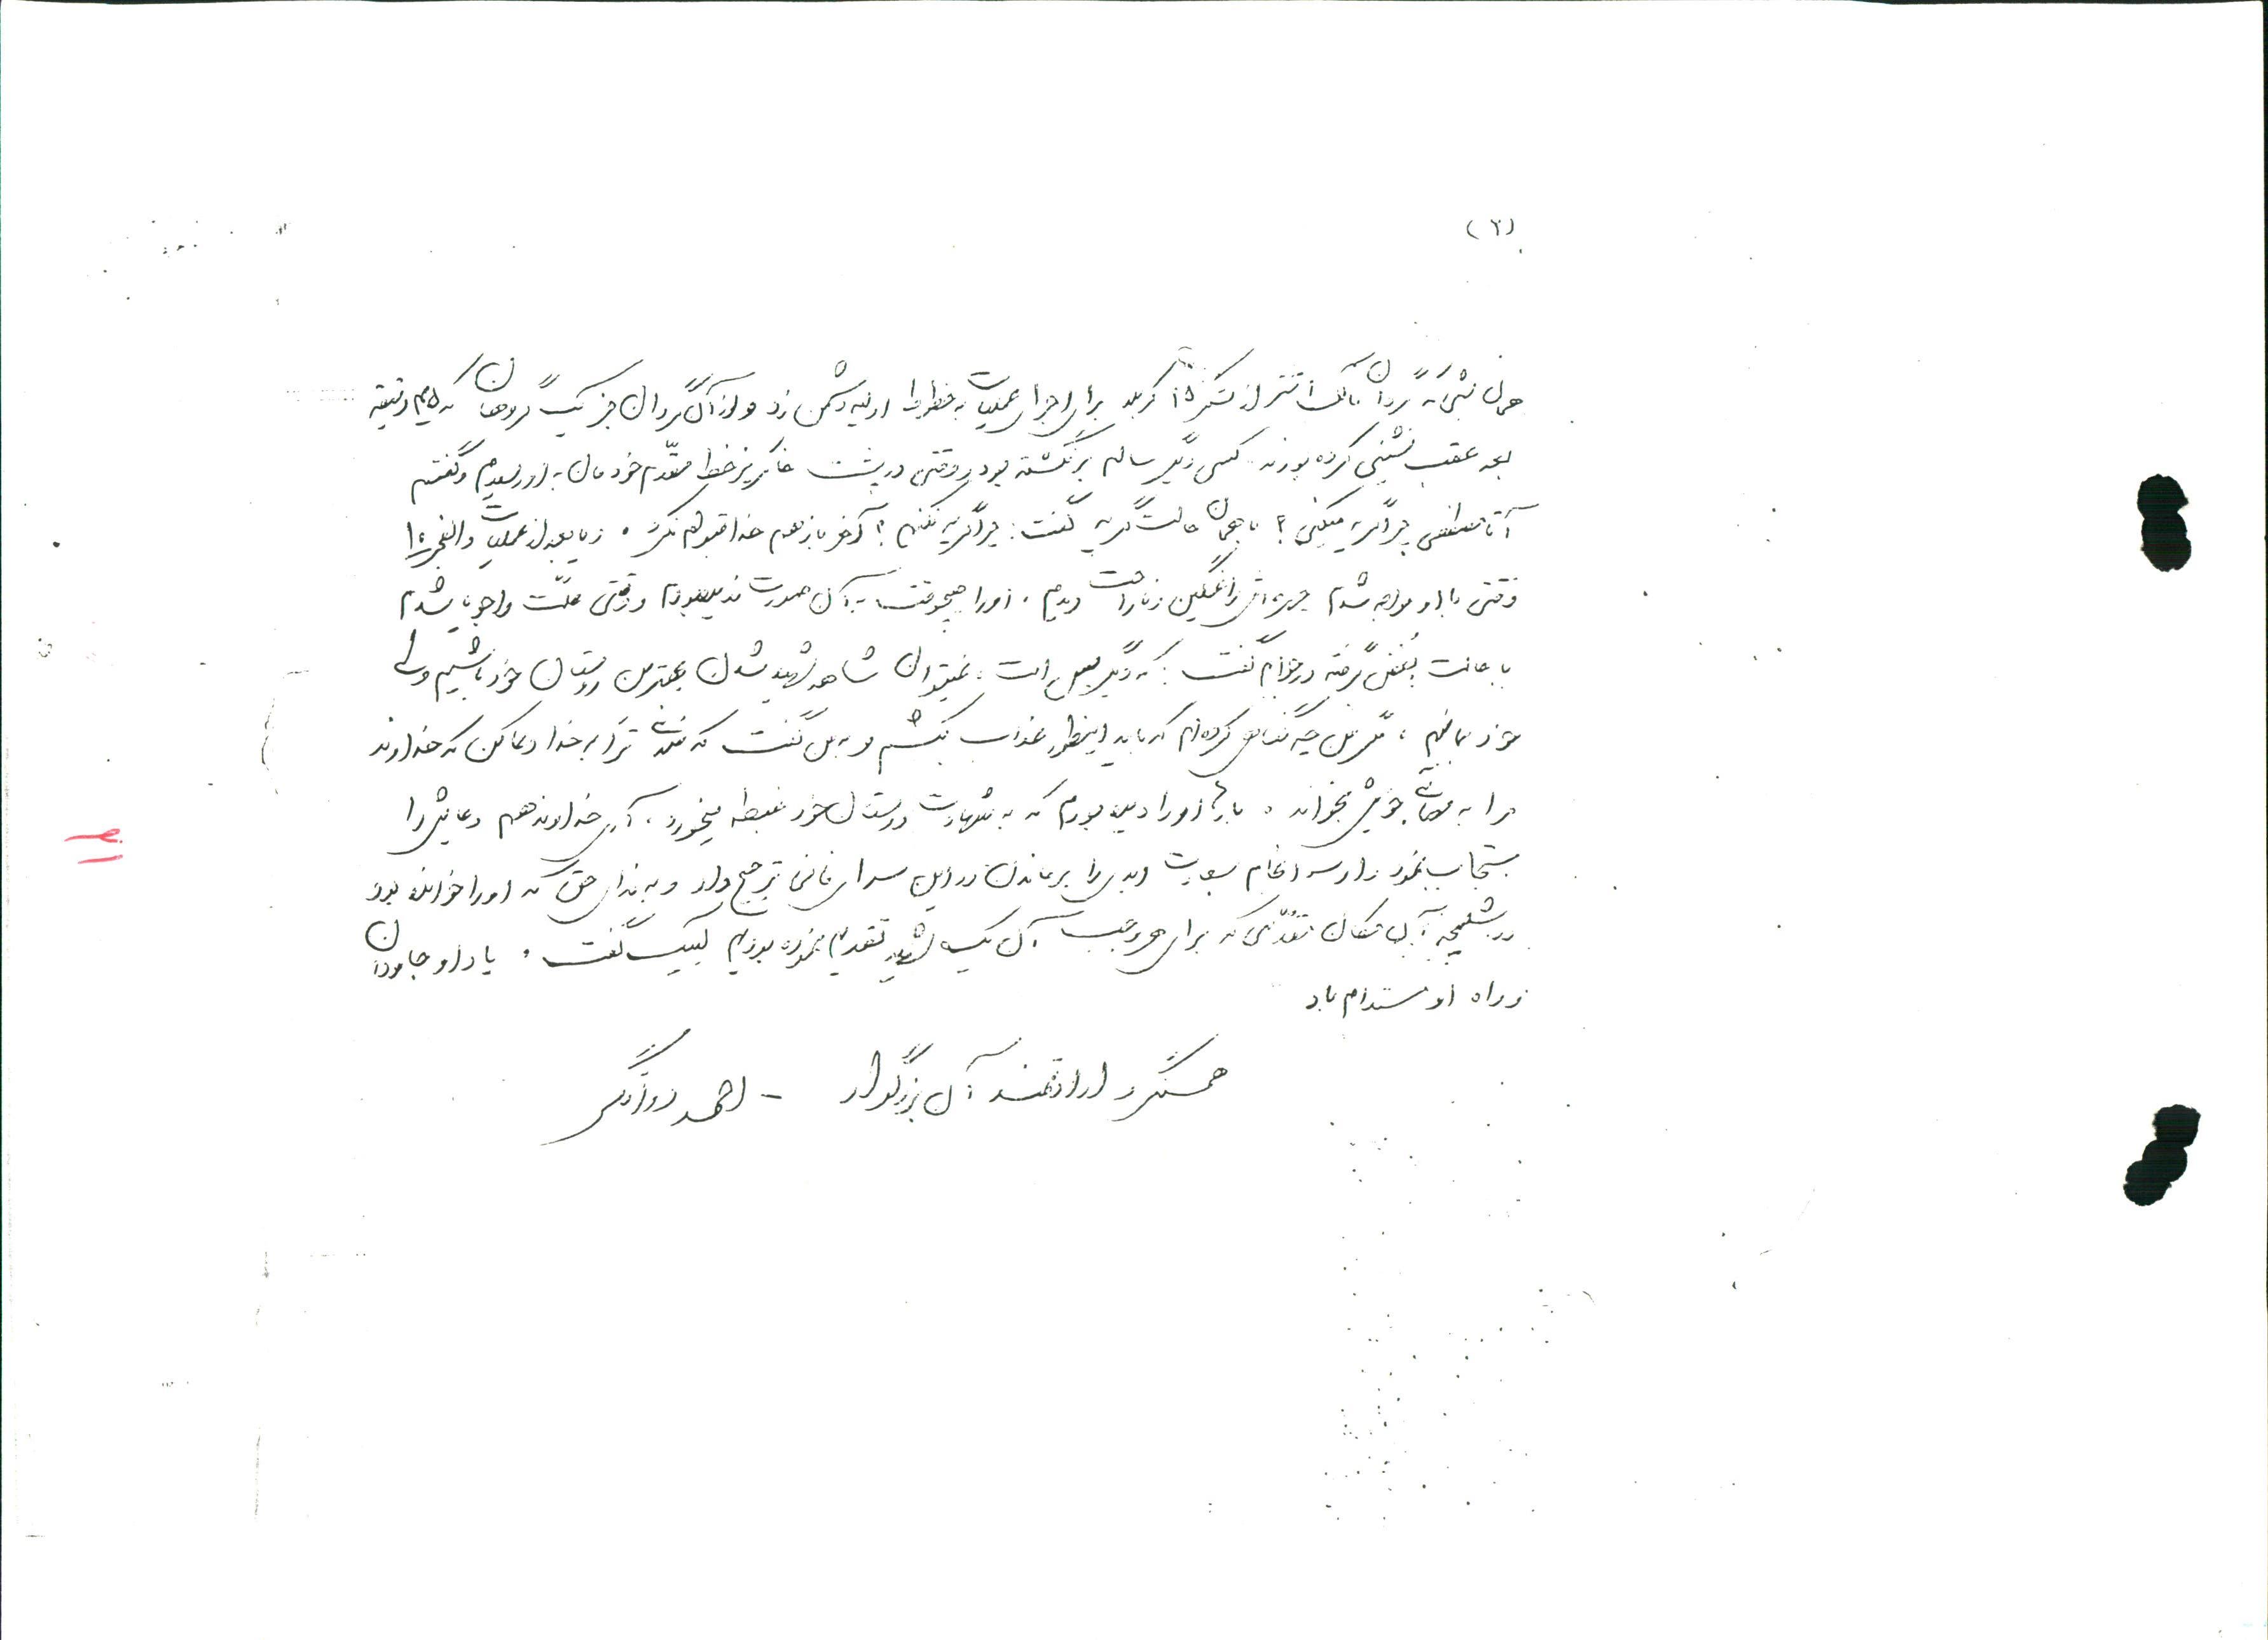 (۲)
همان شبی که گردان مالک اشتر از لشکر ۲۵ کربلا برای اجرای عملیات به خطوط اولیه دشمن زد و از آن گردان جز یک گروهان که نیم دقیقه
بعد عقب نشینی کرده بودند کسی دیگر سالم برنگشته بود و وقتی در پشت خاکریز خط مقدم خودمان به او رسیدم و گفتم
آقا مصطفی چرا گریه میکنی؟ با همان حالت گریه گفت: چرا گریه نکنم؟ آخر باز هم خدا قبولم نکرد. و یا بعد از عملیات والفجر ۱۰
وقتی با او مواجه شدم چهره اش را غمگین و ناراحت دیدم. او را هیچوقت به آن صورت ندیده بودم وقتی علت را جویا شدم
با حالت بغض گرفته در جوابم گفت: که دیگر بس است، نمیتوان شاهد شهید شدن بهترین دوستان خود باشیم ولی
خود بمانیم، مگر من چه گناهی کرده ام که باید اینطور عذاب بکشم و به من گفت که ترا به خدا دعا کن که خداوند
مرا به خویش بخواند. بارها او را دیده بودم که به شهادت دوستان خود غبطه میخورد. آری خداوند هم دعایش را
مستجاب نمود و او سرانجام ابدی را بر ماندن در این سرای فانی ترجیح داد و به ندای حق که او را خوانده بود
در شلمچه آن مکان مقدسی که برای هر وجب آن یک شهید تقدیم نموده بودیم لبیک گفت. یاد او جاودان
و راه او مستدام باد
همسنگر و ارادتمند آن بزرگوار - احمد